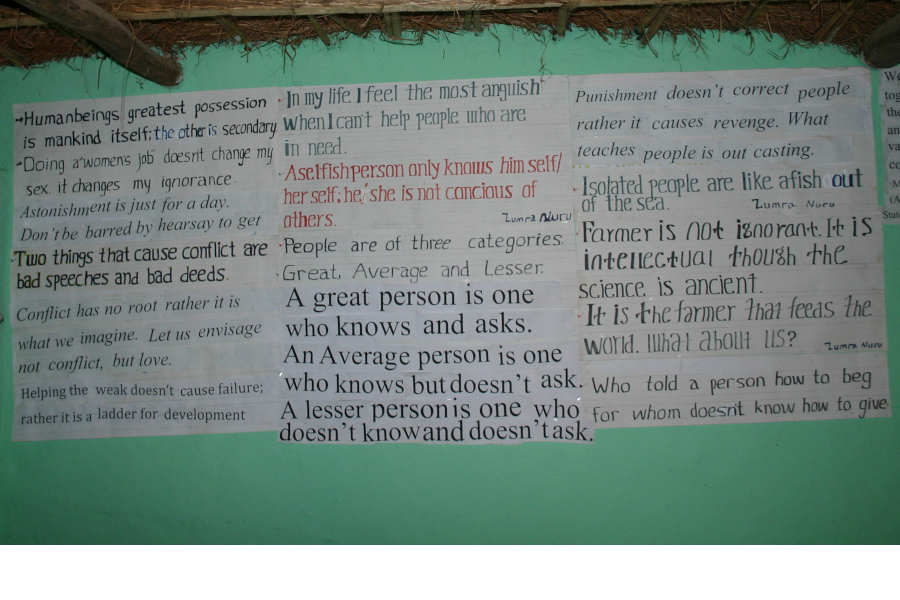 -Humanbeings greatest possession
is mankind itself: the other is secondary
-Doing a women's job doesn't change my
sex it changes my ignorance.
Astonishment is just for a day.
Don't be barred by hearsay to get
Two things that cause conflict are
bad speeches and bad deeds.
Conflict has no root rather it is
what we imagine. Let us envisage
not conflict, but love.
Helping the weak doesn't cause failure;
rather it is a ladder for development
In my life I feel the most anguish
When I can't help people who are
in need.
A selfish person only knows him self/
her self: he/she is not concious of
others.
Zumra Nuru
People are of three categories.
Great, Average and Lesser.
A great person is one
who knows and asks.
An Average person is one
who knows but doesn't ask.
A lesser person is one who
doesn't know and doesn't ask.
Punishment doesn't correct people
rather it causes revenge. What
teaches people is out casting.
Isolated people are like a fish out
of the sea.
Zumra Nuru
Farmer is not ignorant. It is
intellectual though the
science is ancient.
It is the farmer that feeds the
world. What about US?
Zumra Nuru
Who told a person how to beg
for whom doesn't know how to give
We
tog
the
an
va
co